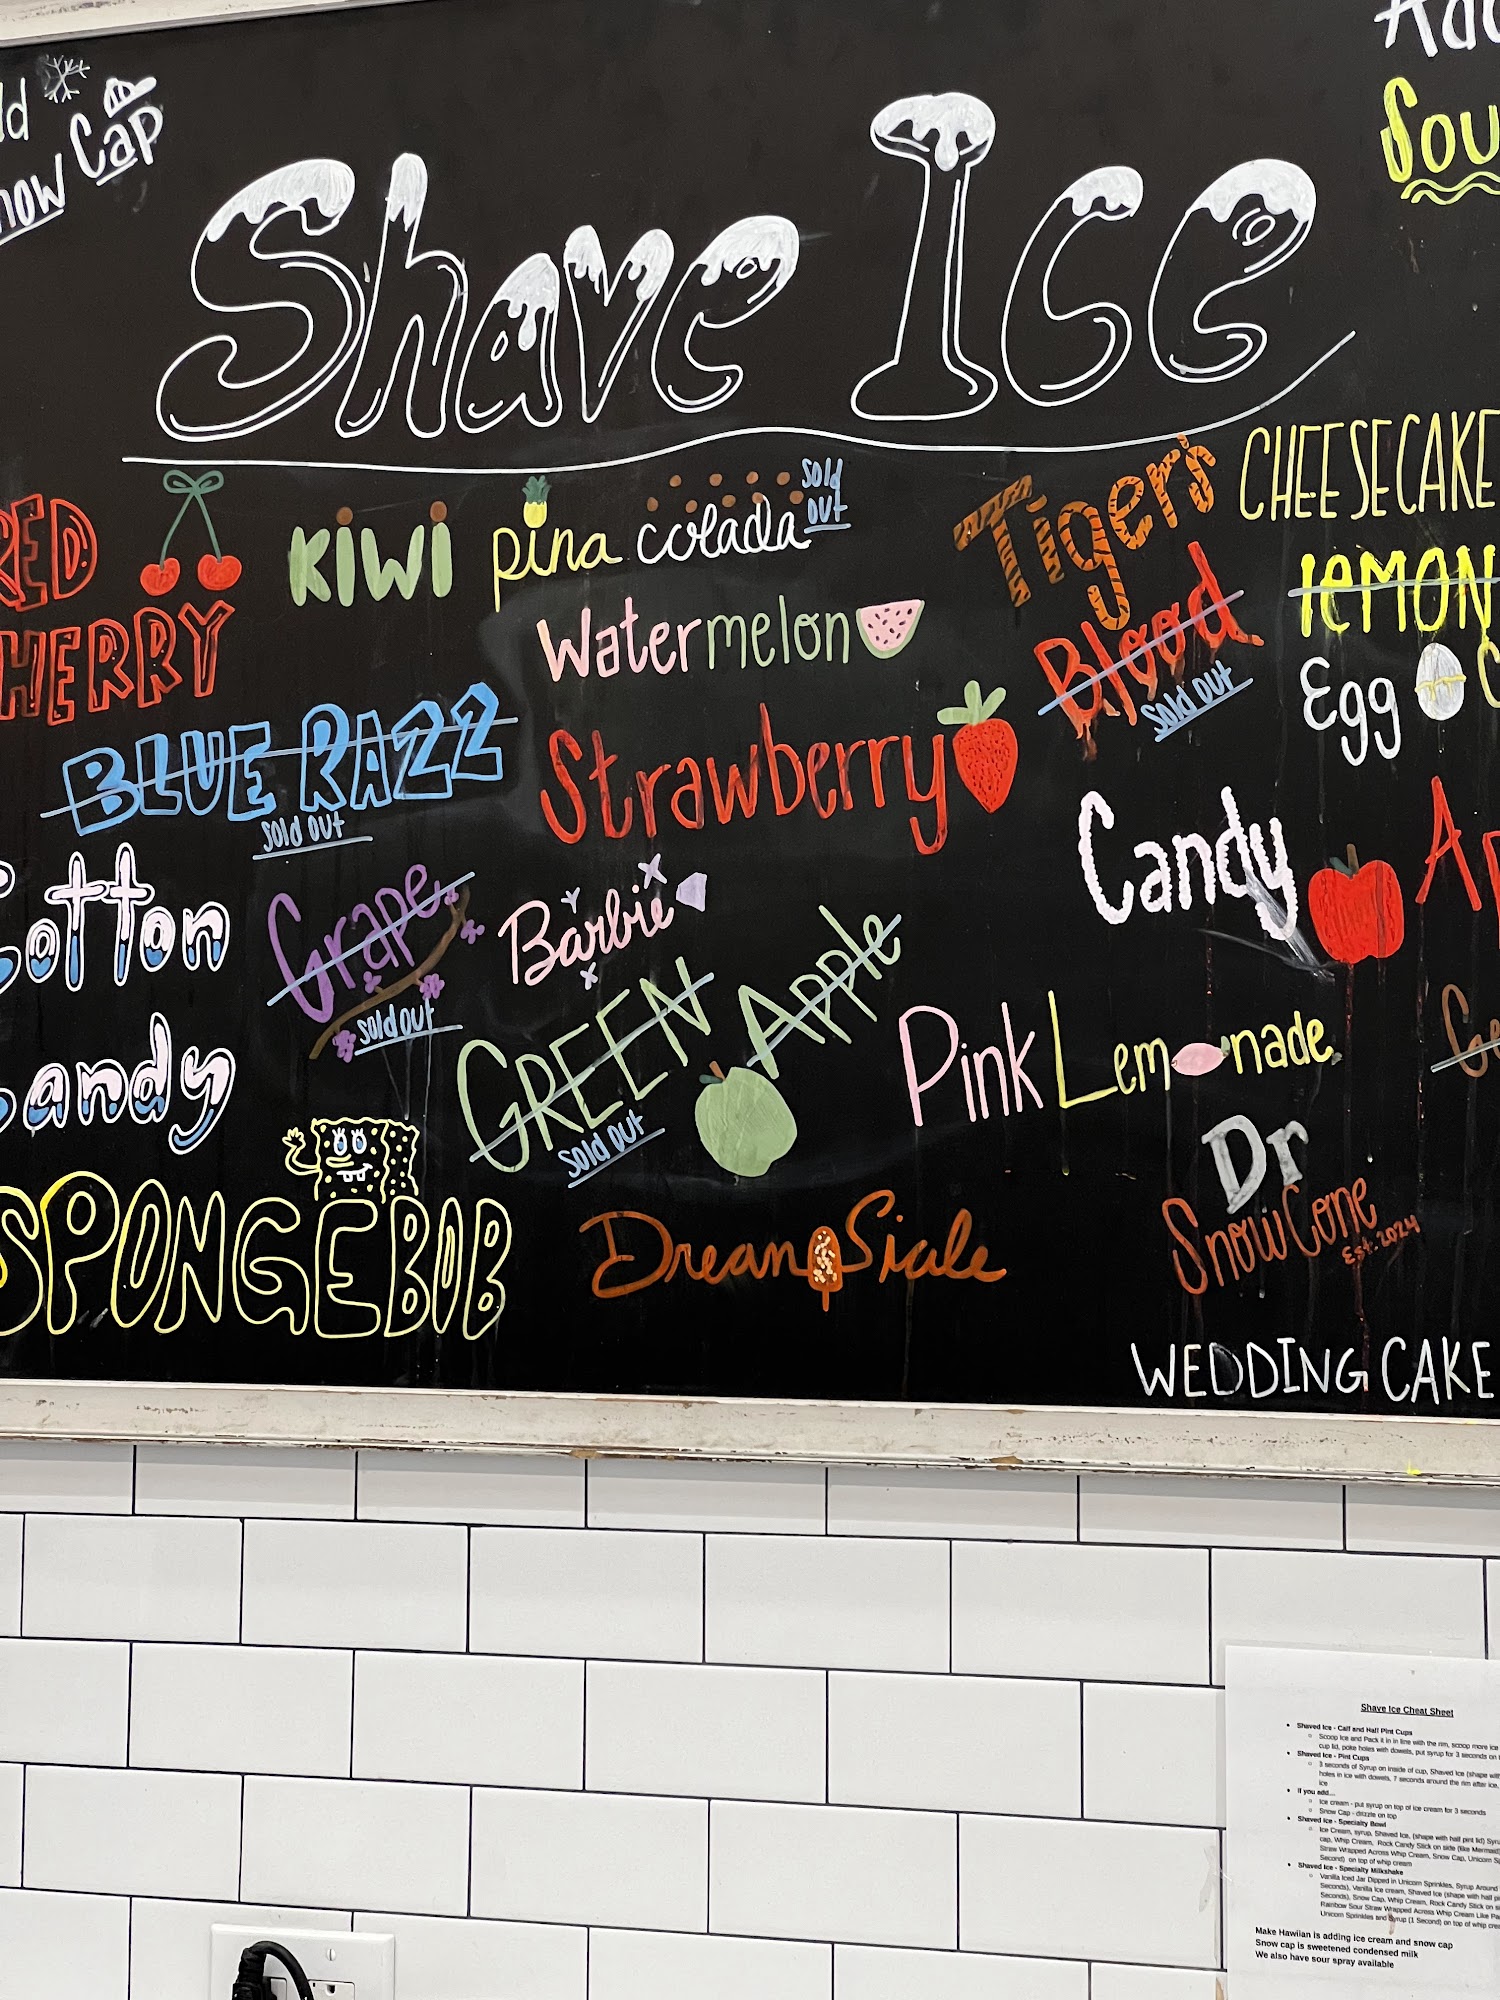 Snow Cap
Sou
Shave Ice
RED
HERRY
KiWi
pina colada
sold out
Watermelon
Tiger's
Blood
sold out
CHEESECAKE
lEMON
Egg
BLUE RAZZ
sold out
Strawberry
Candy
Cotton
Candy
Grape
sold out
Barbie
GREEN Apple
sold out
Pink Lem nade
SPONGEBOB
Dream Sicle
Dr
SnowCone
Est. 2024
WEDDING CAKE
Shave Ice Cheat Sheet
Shaved Ice - Calf and Half Pint Cups
Scoop Ice and Pack it in in line with the rim, scoop more ice
cup lid, poke holes with dowels, put syrup for 3 seconds on
Shaved Ice - Pint Cups
3 seconds of Syrup on inside of cup, Shaved Ice (shape with
holes in ice with dowels, 7 seconds around the rim after ice,
ice
If you add...
Ice cream - put syrup on top of ice cream for 3 seconds
Snow Cap - drizzle on top
Shaved Ice - Specialty Bowl
Ice Cream, syrup, Shaved Ice, (shape with half pint lid)
cap, Whip Cream, Rock Candy Stick on side (like Mermaid)
Straw Wrapped Across Whip Cream, Snow Cap, Unicorn
Second) on top of whip cream
Shaved Ice - Specialty Milkshake
Vanilla Iced Jar Dipped in Unicorn Sprinkles, Syrup Around
Seconds), Vanilla Ice cream, Shaved Ice (shape with half
Seconds), Snow Cap, Whip Cream, Rock Candy Stick on
Rainbow Sour Straw Wrapped Across Whip Cream Like
Unicorn Sprinkles and Syrup (1 Second) on top of whip
Make Hawiian is adding ice cream and snow cap
Snow cap is sweetened condensed milk
We also have sour spray available